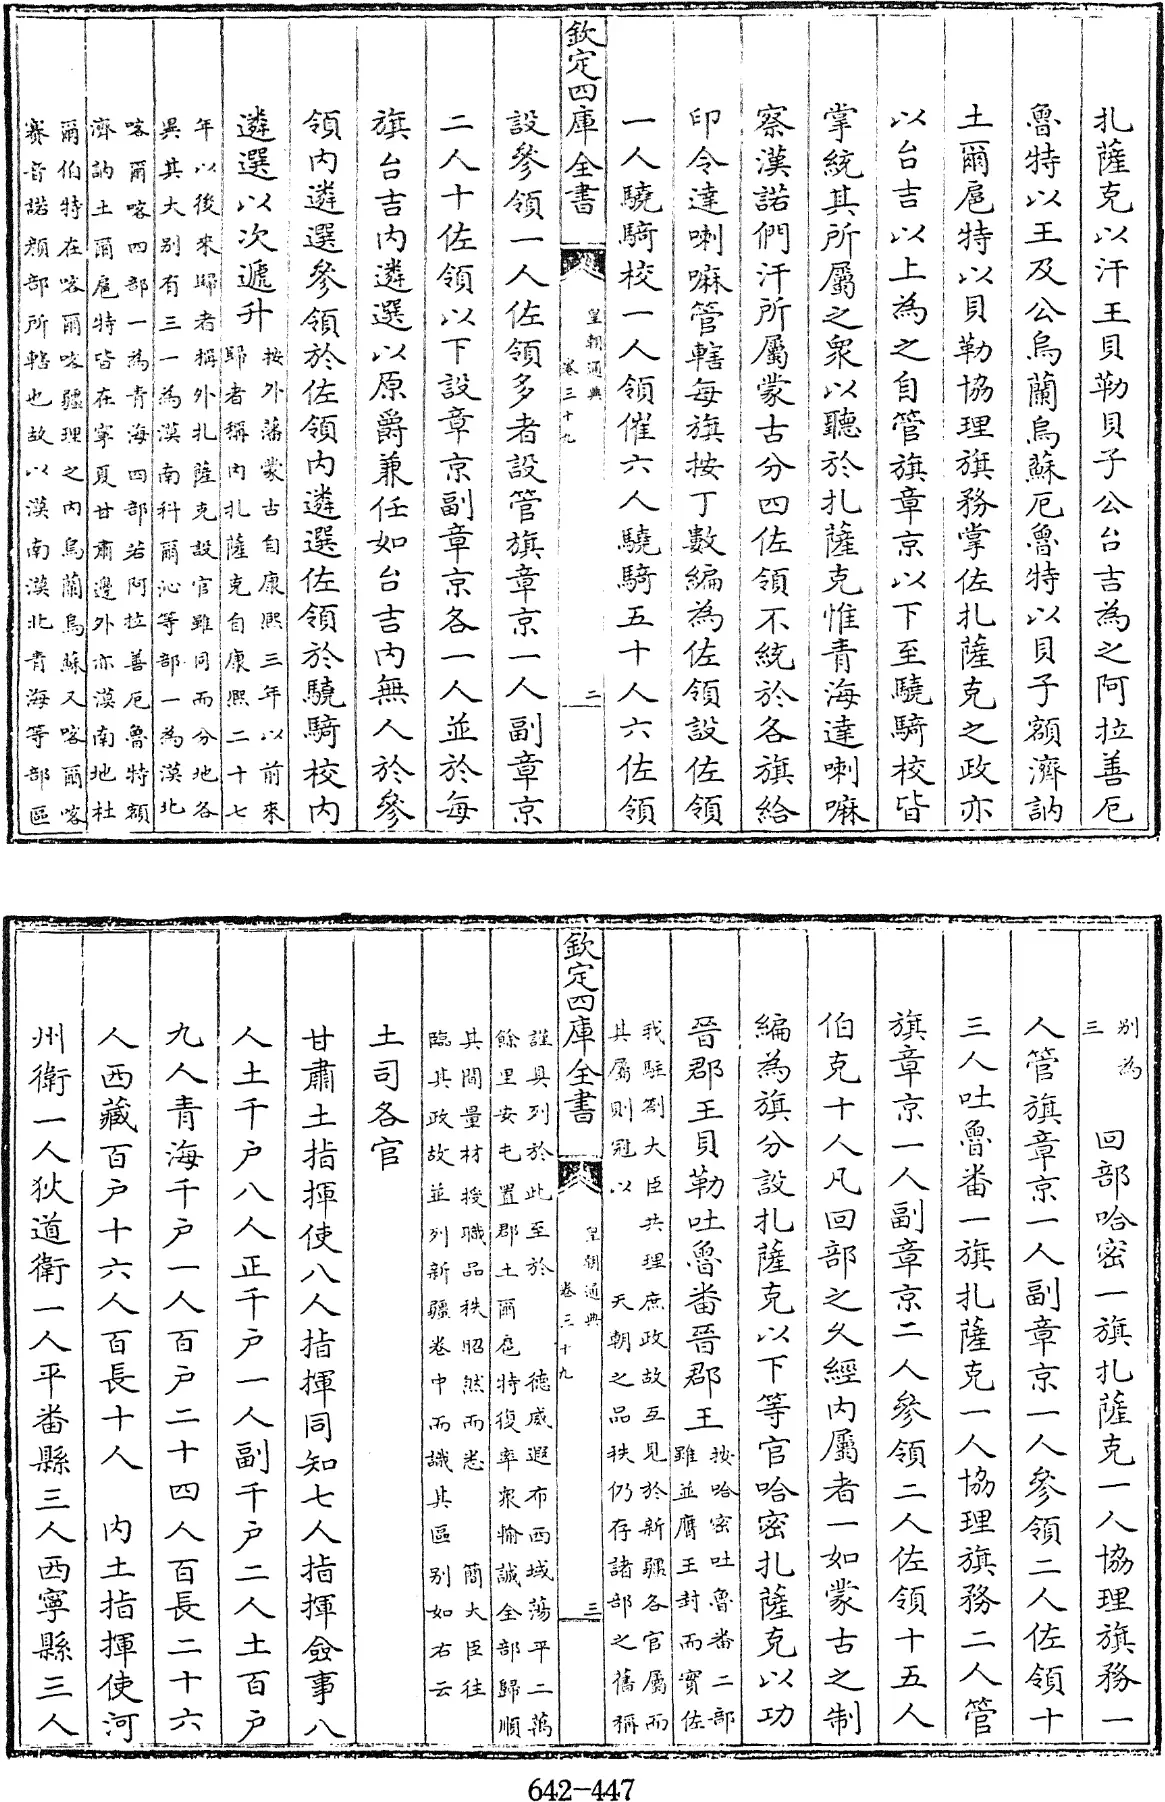 扎薩克以汗王貝勒貝子公台吉為之阿拉善厄
魯特以王及公烏蘭烏蘇厄魯特以貝子額濟訥
土爾扈特以貝勒協理旗務掌佐扎薩克之政亦
以台吉以上為之自管旗章京以下至驍騎校皆
掌統其所屬之衆以聽於扎薩克惟青海達喇嘛
察漢諾們汗所屬蒙古分四佐領不統於各旗給
印令達喇嘛管轄每旗按丁數編為佐領設佐領
一人驍騎校一人領催六人驍騎五十人六佐領
欽定四庫全書 皇朝通典 卷三十九 二
設參領一人佐領多者設管旗章京一人副章京
二人十佐領以下設章京副章京各一人並於每
旗台吉內遴選以原爵兼任如台吉內無人於參
領內遴選參領於佐領內遴選佐領於驍騎校內
遴選以次遞升 按外藩蒙古自康熙三年以前來
歸者稱內扎薩克自康熙二十七
年以後來歸者稱外扎薩克設官雖同而分地各
異其大別有三一為漠南科爾沁等部一為漠北
喀爾喀四部一為青海四部若阿拉善厄魯特額
濟訥土爾扈特皆在寧夏甘肅邊外亦漠南地杜
爾伯特在喀爾喀疆理之內烏蘭烏蘇又喀爾喀
賽音諾顏部所轄也故以漠南漠北青海等部區
別為
三 回部哈密一旗扎薩克一人協理旗務一
人管旗章京一人副章京一人參領二人佐領十
三人吐魯番一旗扎薩克一人協理旗務二人管
旗章京一人副章京二人參領二人佐領十五人
伯克十人凡回部之久經內屬者一如蒙古之制
編為旗分設扎薩克以下等官哈密扎薩克以功
晉郡王貝勒吐魯番晉郡王 按哈密吐魯番二部
雖並膺王封而實佐
我駐劄大臣共理庶政故互見於新疆各官屬而
其屬則冠以 天朝之品秩仍存諸部之舊稱
欽定四庫全書 皇朝通典 卷三十九 三
謹具列於此至於 德威遐布西域蕩平二萬
餘里安屯置郡土爾扈特復率衆輸誠全部歸順
其間量材授職品秩昭然而悉 簡大臣往
臨其政故並列新疆卷中而識其區別如右云
土司各官
甘肅土指揮使八人指揮同知七人指揮僉事八
人土千户八人正千户一人副千户二人土百户
九人青海千户一人百户二十四人百長二十六
人西藏百户十六人百長十人 內土指揮使河
州衛一人狄道衛一人平番縣三人西寧縣三人
642-447